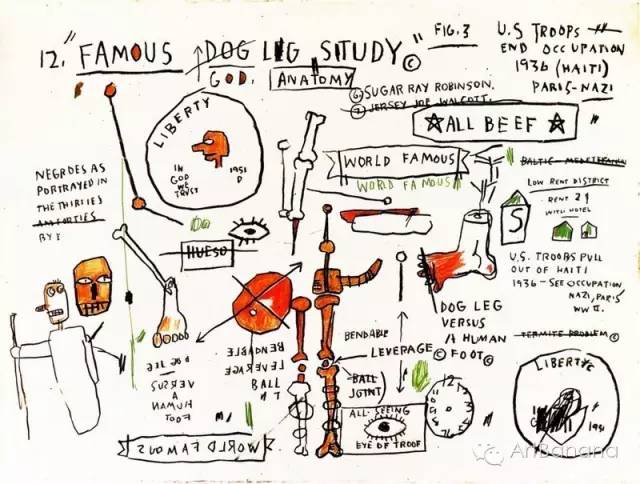 12. "FAMOUS DOG LEG STUDY" ©
GOD. ANATOMY
FIG. 3
U.S TROOPS
END OCCUPATION
1936 (HAITI)
PARIS-NAZI
SUGAR RAY ROBINSON.
JERSEY JOE WALCOTT.
ALL BEEF
LIBERTY
IN
GOD
WE
TRUST
1951
D
WORLD FAMOUS
WORLD FAMOUS
LOW RENT DISTRICT
RENT 21
WITH HOTEL
S
NEGROES AS
PORTRAYED IN
THE THIRTIES
AN FORTIES
BY:
HUESO
U.S. TROOBS PULL
OUT OF HAITI
1936-SEE OCCUPATION
NAZI, PARIS
WW II.
TERMITE PROBLEM ©
DOG LEG
VERSUS
A HUMAN
© FOOT ©
BENDABLE
LEVERAGE
BALL
JOINT)
BENDABLE
LEVERAGE
BALL
DOG LEG
VERSUS
A
HUMAN
FOOT
WORLD FAMOUS
ALL-SEEING
EYE OF TROOF
12
LIBERTY
1951
ArtBanana